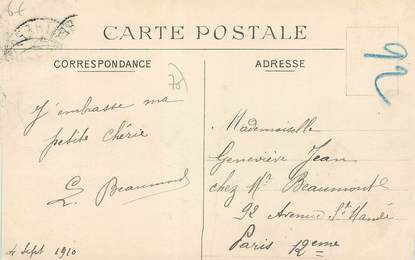 6€
CARTE POSTALE
CORRESPONDANCE
ADRESSE
92
78
J'embrasse ma
petite chérie
L. Beaumont
4 Sept 1910
Mademoiselle
Geneviève Jean
chez Mr Beaumont
92 Avenue St Mandé
Paris 12eme